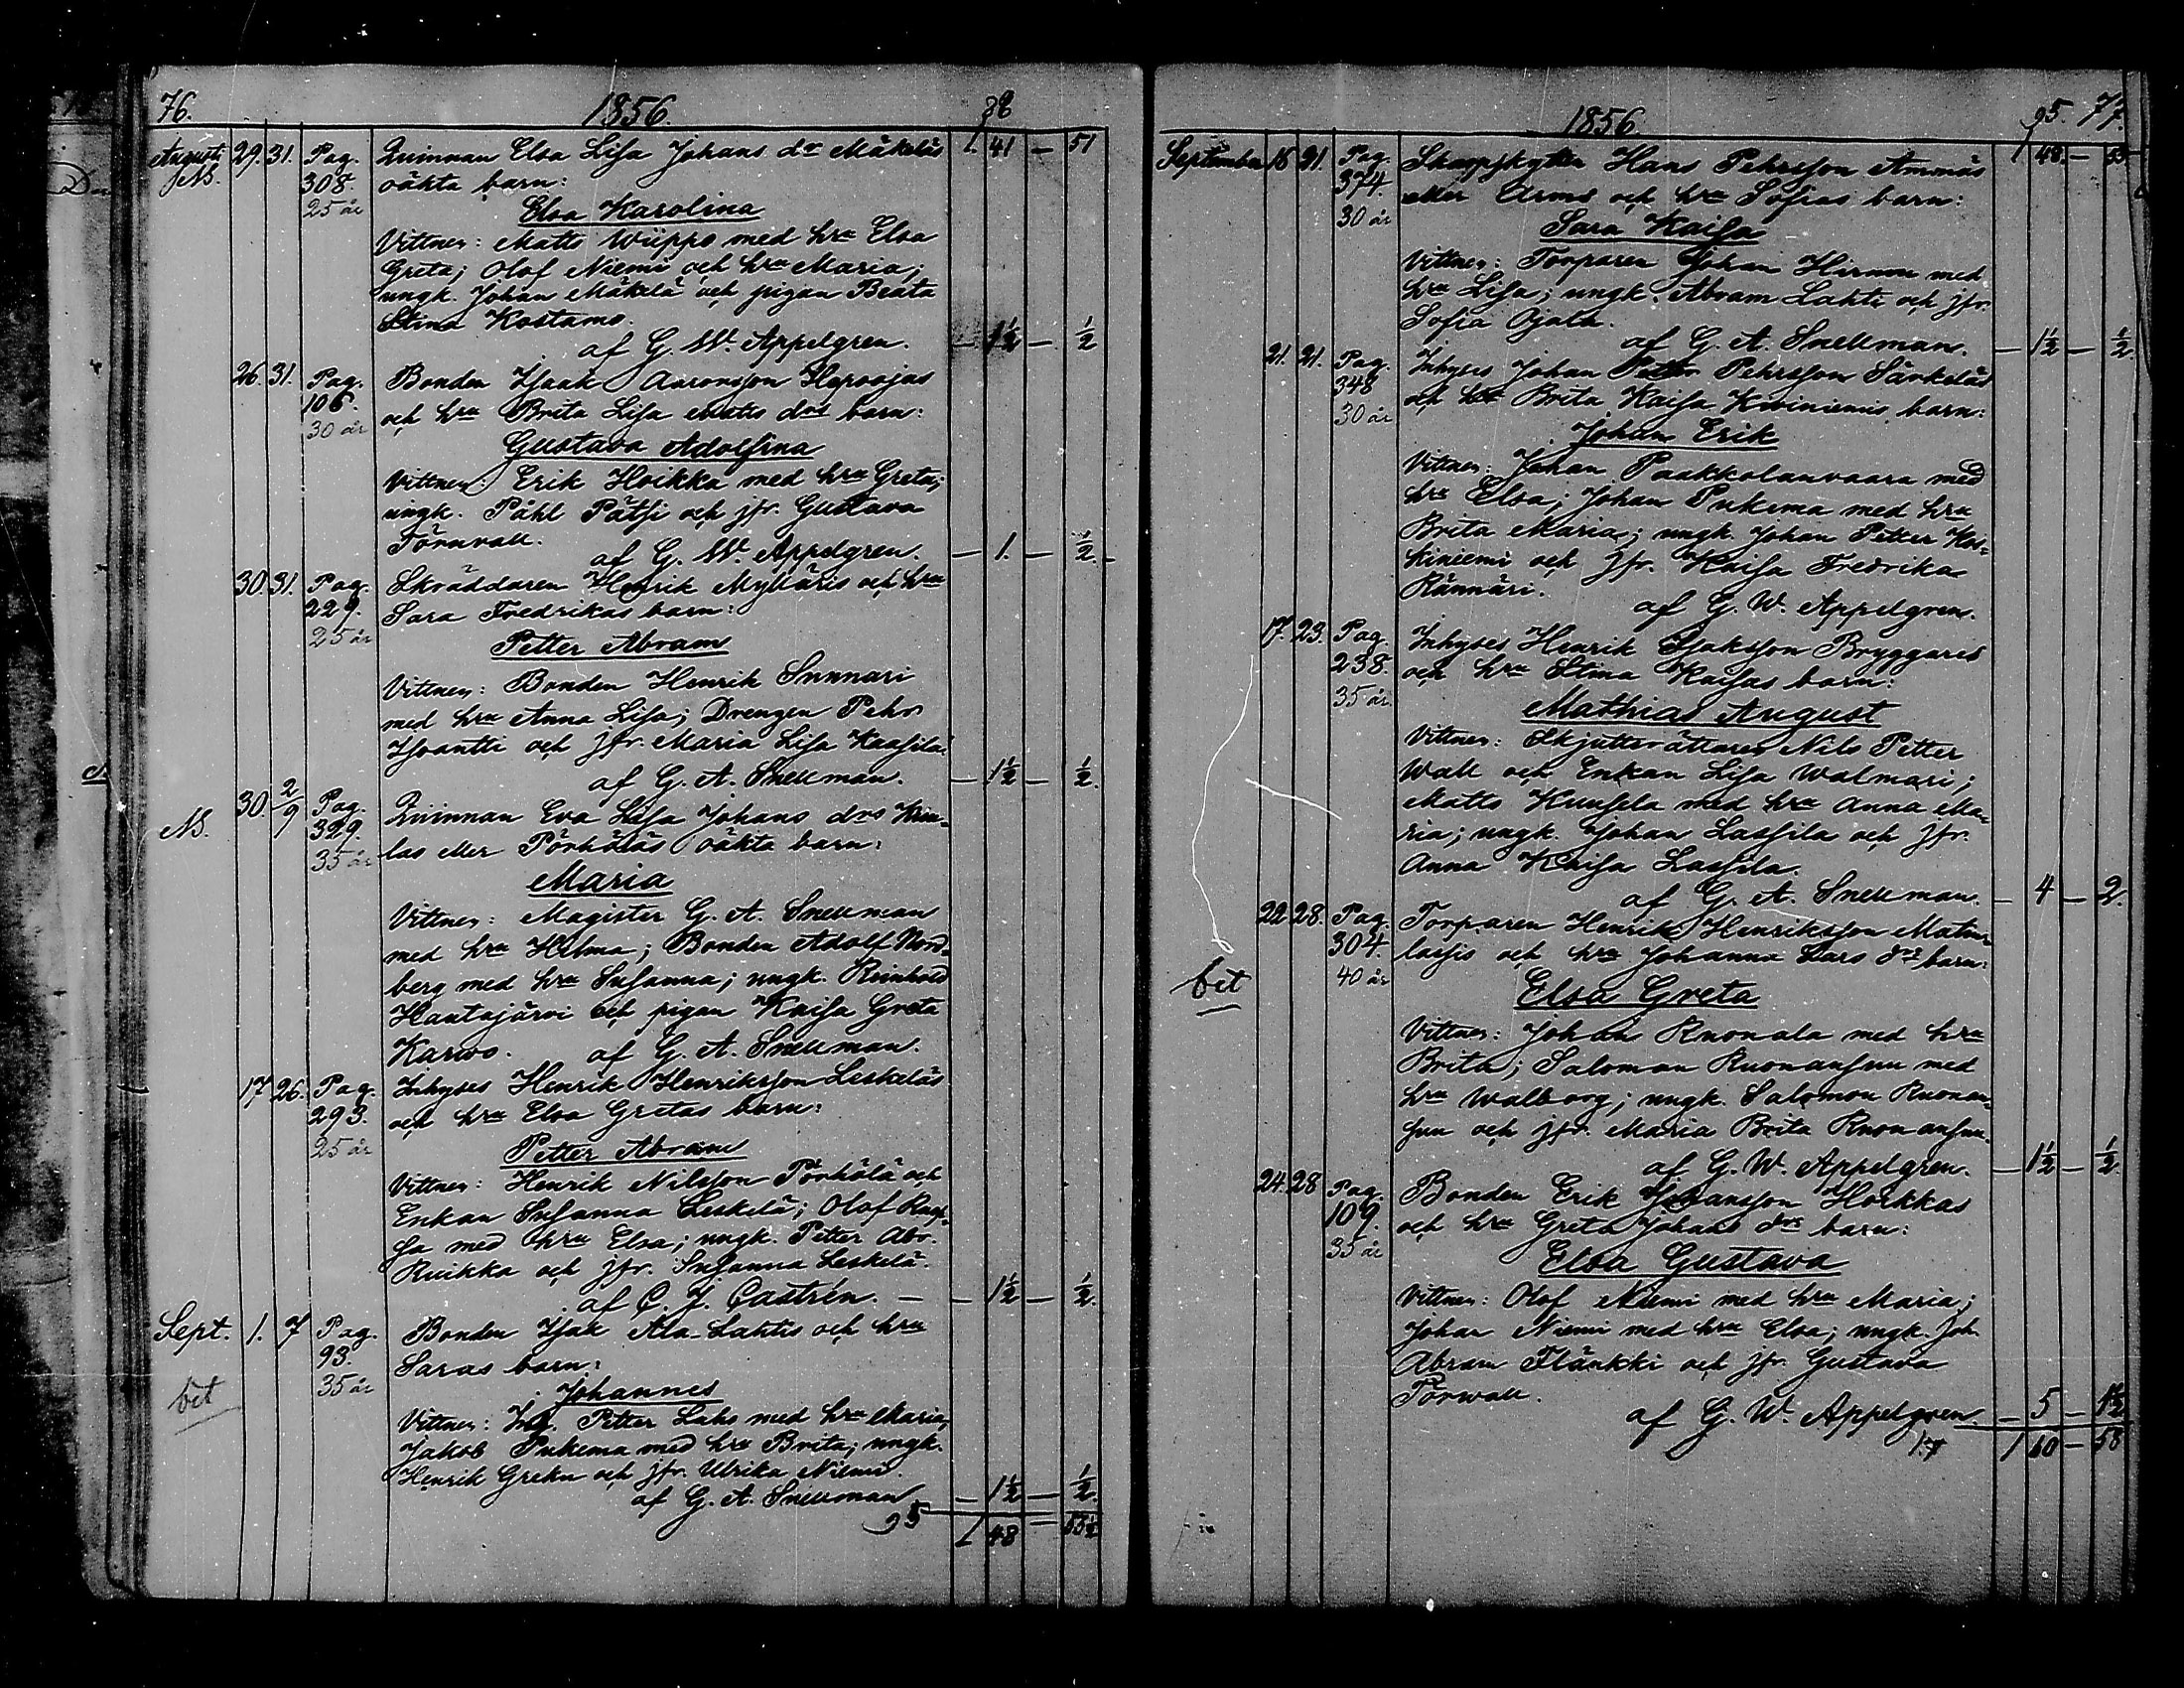 76. 1856. 98
Augusti 29. 31. Pag. Quinnan Elsa Lisa Johans drs Mäkeläs 1. 41 — 51
NB. 308. oäkta barn:
25 år Elsa Karolina
Vittnen: Matts Wiippo med hru Elsa
Greta; Olof Niemi och hru Maria;
ungk. Johan Mäkelä och pigan Beata
Stina Kostamo.
af G. W. Appelgren. — 1½ — ½
26. 31. Pag. Bonden Isaak Aaronsson
106. och hru Brita Lisa Matts drs barn:
30 år Gustava Adolfina
Vittnen: Erik Hoikka med hru Greta;
ungk. Påhl Pätsi och jfr. Gustava
Törnvall.
af G. W. Appelgren. — 1. — ½.
30. 31. Pag. Skräddaren Henrik Mylläris och hru
229. Sara Fredrikas barn:
25 år Petter Abram
Vittnen: Bonden Henrik Sunnari
med hru Anna Lisa; Drengen Pehr
och jfr. Maria Lisa Kaasila.
af G. A. Snellman. — 1½ — ½.
NB. 30. 2/9 Pag. Quinnan Eva Lisa Johans drs
329. las eller Pörhöläs oäkta barn:
35 år Maria
Vittnen: Magister G. A. Snellman
med hru Hilma; Bonden Adolf Nord-
berg med hru Susanna; ungk. Reinhold
Hautajärvi och pigan Kaisa Greta
Karwo. af G. A. Snellman.
17 26. Pag. Inhyses Henrik Henriksson Leskeläs
293. och hru Elsa Gretas barn:
25 år Petter Abram
Vittnen: Henrik Nilsson Pörhölä och
Enkan Susanna Leskelä; Olof
sa med hru Elsa; ungk. Petter Abr.
Ruikka och jfr. Susanna Leskelä.
af C. J. Castrén. — — 1½ — ½.
Sept. 1. 7 Pag. Bonden Isak Ala-Lahtis och hru
93. Saras barn:
bet 35 år Johannes
Vittnen: Inh. Petter Lahs med hru Maria;
Jakob Pukema med hru Brita; ungk.
Henrik Greku och jfr. Ulrika Niemi.
af G. A. Snellman — 1½ — ½.
95 1 48 — 53½
1856. 95. 77.
September 16 21. Pag. Skarpskytten Hans Pehrsson Ammäs 1 48. — 53
374. eller Arms och hru Sofias barn:
30 år Sara Kaisa
Vittnen: Torparen Johan Hirmu med
hru Lisa; ungk. Abram Lahti och jfr.
Sofia Ojala.
af G. A. Snellman. — 1½ — ½.
21. 21. Pag. Inhyses Johan Petter Pehrsson Särkeläs
348 och hru Brita Kaisa Kiviniemis barn:
30 år Johan Erik
Vittnen: Johan Paakkolanvaara med
hru Elsa; Johan Pukema med hru
Brita Maria; ungk. Johan Petter Kos-
kiniemi och jfr. Kaisa Fredrika
Rännäri.
af G. W. Appelgren.
17. 23. Pag. Inhyses Henrik Isaksson Bryggares
238. och hru Stina Kaisas barn:
35 år Mathias August
Vittnen: Skjutsrättaren Nils Petter
Wall och Enkan Lisa Walmari;
Matts Kuusela med hru Anna Ma-
ria; ungk. Johan Lassila och jfr.
Anna Kaisa Lassila.
af G. A. Snellman. — 4 — 2.
22 28. Pag. Torparen Henrik Henriksson Matin-
304. lassis och hru Johanna Lars drs barn:
bet 40 år Elsa Greta
Vittnen: Johan Ruonala med hru
Brita; Salomon Ruonansuu med
hru Walborg; ungk. Salomon Ruonan-
suu och jfr. Maria Brita Ruonansuu.
af G. W. Appelgren. — 1½ — ½.
24. 28 Pag. Bonden Erik Johansson Hoikkas
109. och hru Greta Johans drs barn:
35 år Elsa Gustava
Vittnen: Olof Niemi med hru Maria;
Johan Niemi med hru Elsa; ungk. Joh.
Abram Flänkki och jfr. Gustava
Törwall.
af G. W. Appelgren. — 5 — 1½
1 60 — 58